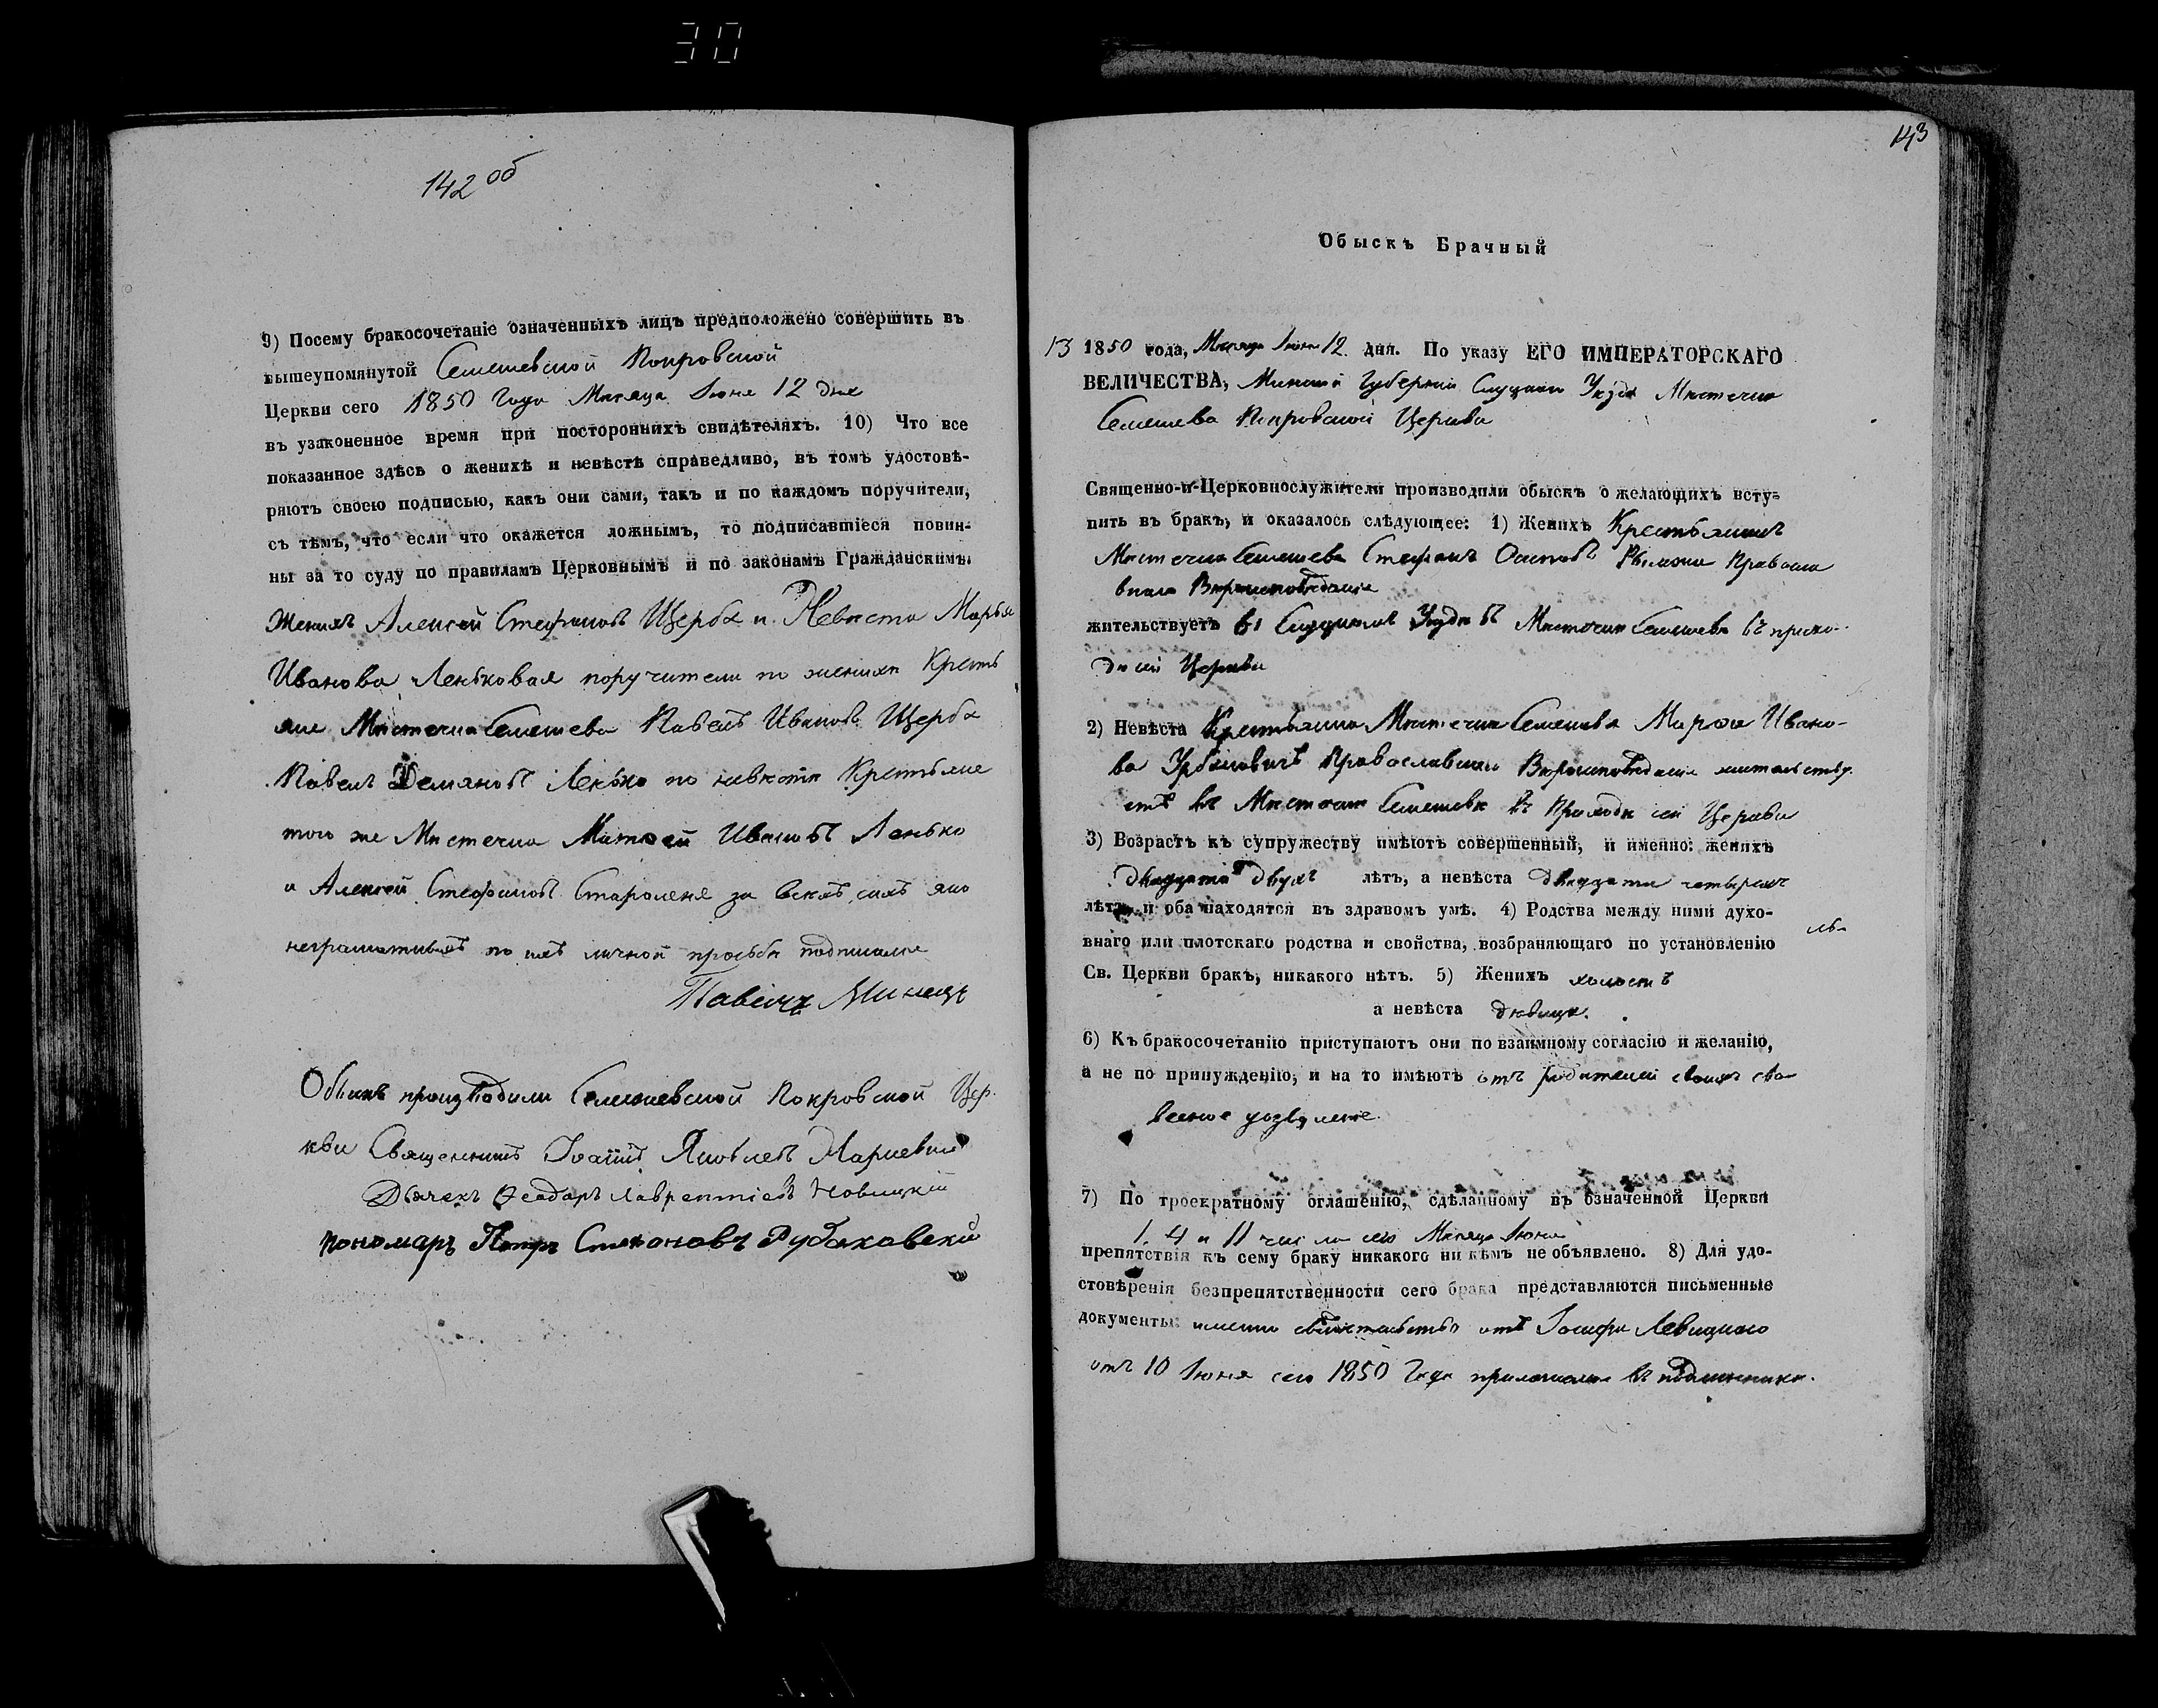 30
142 об
9) Посему бракосочетаніе означенныхъ лицъ предположено совершить въ
вышеупомянутой Семежевской Покровской
Церкви сего 1850 Года Мѣсяца Іюня 12 дня
въ узаконенное время при постороннихъ свидѣтеляхъ. 10) Что все
показанное здѣсь о женихѣ и невѣстѣ справедливо, въ томъ удостовѣ-
ряютъ своею подписью, какъ они сами, такъ и по каждомъ поручители,
съ тѣмъ, что если что окажется ложнымъ, то подписавшіеся повин-
ны за то суду по правиламъ Церковнымъ и по законамъ Гражданскимъ.
Женихъ Алексей Стефановъ Щерба и Невѣста Марья
Иванова Леньковая поручители по женихѣ Кресть
яне Мѣстечка Семежева Павелъ Ивановъ Щерба
Павелъ Демяновъ Ленько по невѣстѣ Крестьяне
того же Мѣстечка Матвей Ивановъ Ленько
и Алексей Стефановъ Староленя за всехъ сихъ яко
неграмотныхъ по ихъ личной прозьбѣ подписался
Павелъ
Обыскъ производили Семежевской Покровской Цер
кви Священникъ Іоаннъ Яковлевъ
Дьячекъ Феодоръ Лаврентіевъ Новицкій
пономаръ Петръ Рубаковскій
143
Обыскъ Брачный
13 1850 года, Мѣсяца Іюня 12 дня. По указу ЕГО ИМПЕРАТОРСКАГО
ВЕЛИЧЕСТВА, Минской Губерніи Слуцкаго Уѣзда Мѣстечка
Семежева Покровской Церкви
Священно-и-Церковнослужители производили обыскъ о желающихъ всту-
пить въ бракъ, и оказалось слѣдующее: 1) Женихъ Крестьянинъ
Мѣстечка Семежева Стефанъ Правосла
внаго Вѣроисповѣданія
жительствуетъ въ Слуцкомъ Уѣздѣ въ Мѣстечкѣ Семежевѣ въ прихо-
дѣ сей Церкви
2) Невѣста Крестьянка Мѣстечка Семежева Марѳа Ивано-
ва Урбановичъ Православнаго Вѣроисповѣданія жительству
етъ въ Мѣстечкѣ Семежевѣ въ Приходѣ сей Церкви
3) Возрастъ къ супружеству имѣютъ совершенный, и именно: женихъ
двадцати двухъ лѣтъ, а невѣста двадцати четырехъ
лѣтъ, и оба находятся въ здравомъ умѣ. 4) Родства между ними духо-
внаго или плотскаго родства и свойства, возбраняющаго по установленію
Св. Церкви бракъ, никакого нѣтъ. 5) Женихъ холостъ
а невѣста дѣвица.
6) Къ бракосочетанію приступаютъ они по взаимному согласію и желанію,
а не по принужденію, и на то имѣютъ отъ родителей своихъ сло
весное дозволеніе.
7) По троекратному оглашенію, сдѣланному въ означенной Церкви
1. 4 и 11 числа сего Мѣсяца Іюня
препятствія къ сему браку никакого ни кѣмъ не объявлено. 8) Для удо-
стовѣренія безпрепятственности сего брака представляются письменные
документы: именно свидѣтельство отъ Іосифа Левицкаго
отъ 10 Іюня сего 1850 Года въ подлинникѣ.